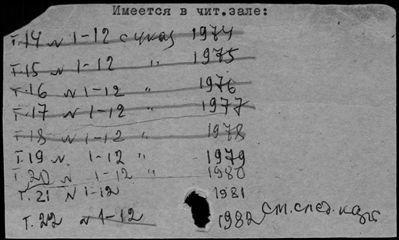 Имеется в чит.зале:
Т.14 N 1-12 с указ 1974
Т.15 N 1-12 " 1975
Т.16 N 1-12 " 1976
Т.17 N 1-12 " 1977
Т.18 N 1-12 " 1978
Т.19 N. 1-12 " 1979
Т.20 N 1-12 " 1980
Т.21 N 1-12 1981
Т.22 N 1-12 1982 см. след.